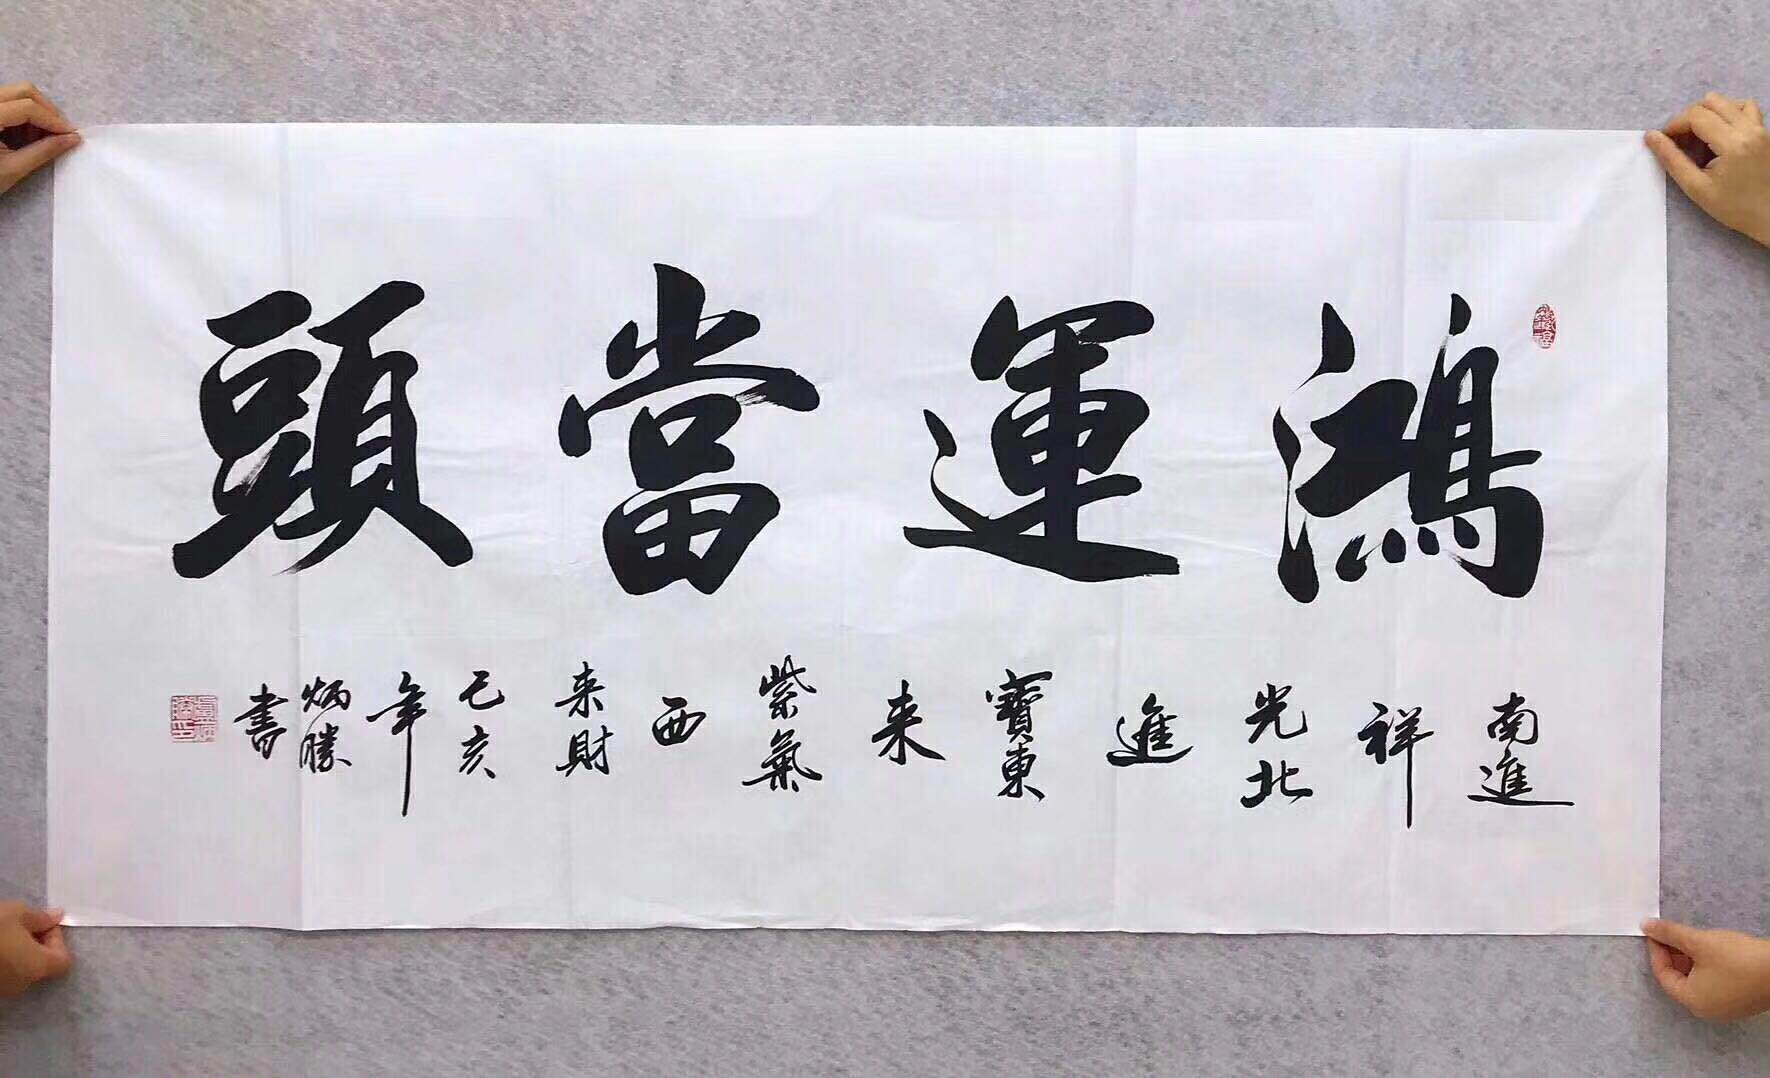 鴻運當頭
南進祥光北進寶東来紫氣西来財己亥年炳勝書